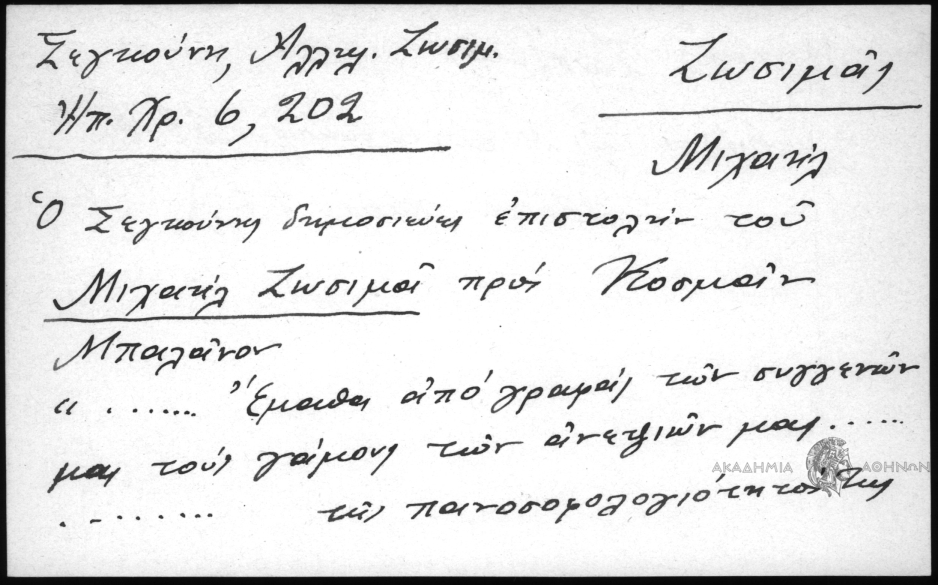 Σεγκούνη, Ἀλλτλ. Ζωσιμ.
Ἠπ. Χρ. 6, 202
Ζωσιμᾶς
Μιχαήλ
Ὁ Σεγκούνης δημοσιεύει ἐπιστολὴν τοῦ
Μιχαήλ Ζωσιμᾶ πρός Κοσμᾶν
Μπαλᾶνον
"....... Ἔμαθα ἀπό γραφάς τῶν συγγενῶν
μας τούς γάμους τῶν ἀνεψιῶν μας......
......... τῆς πανοσοφολογιότητός της
ΑΚΑΔΗΜΙΑ ΑΘΗΝΩΝ